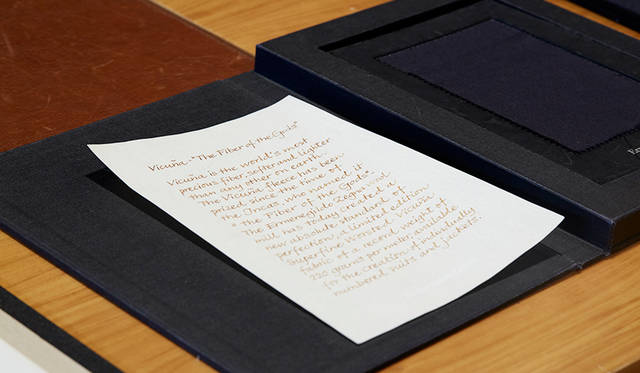 Vicuña. "The Fiber of the Gods"
Vicuña is the world's most
precious fiber, softer and lighter
than any other on earth.
The Vicuña fleece has been
prized since the time of
the Incas, who named it
"The Fiber of the Gods".
The Ermenegildo Zegna wool
mill has today created a
new absolute standard
perfection, a limited edition
superfine worsted Vicuña
fabric of a record weight of
220 grams per meter, available
for the creation of individually
numbered suits and jackets.